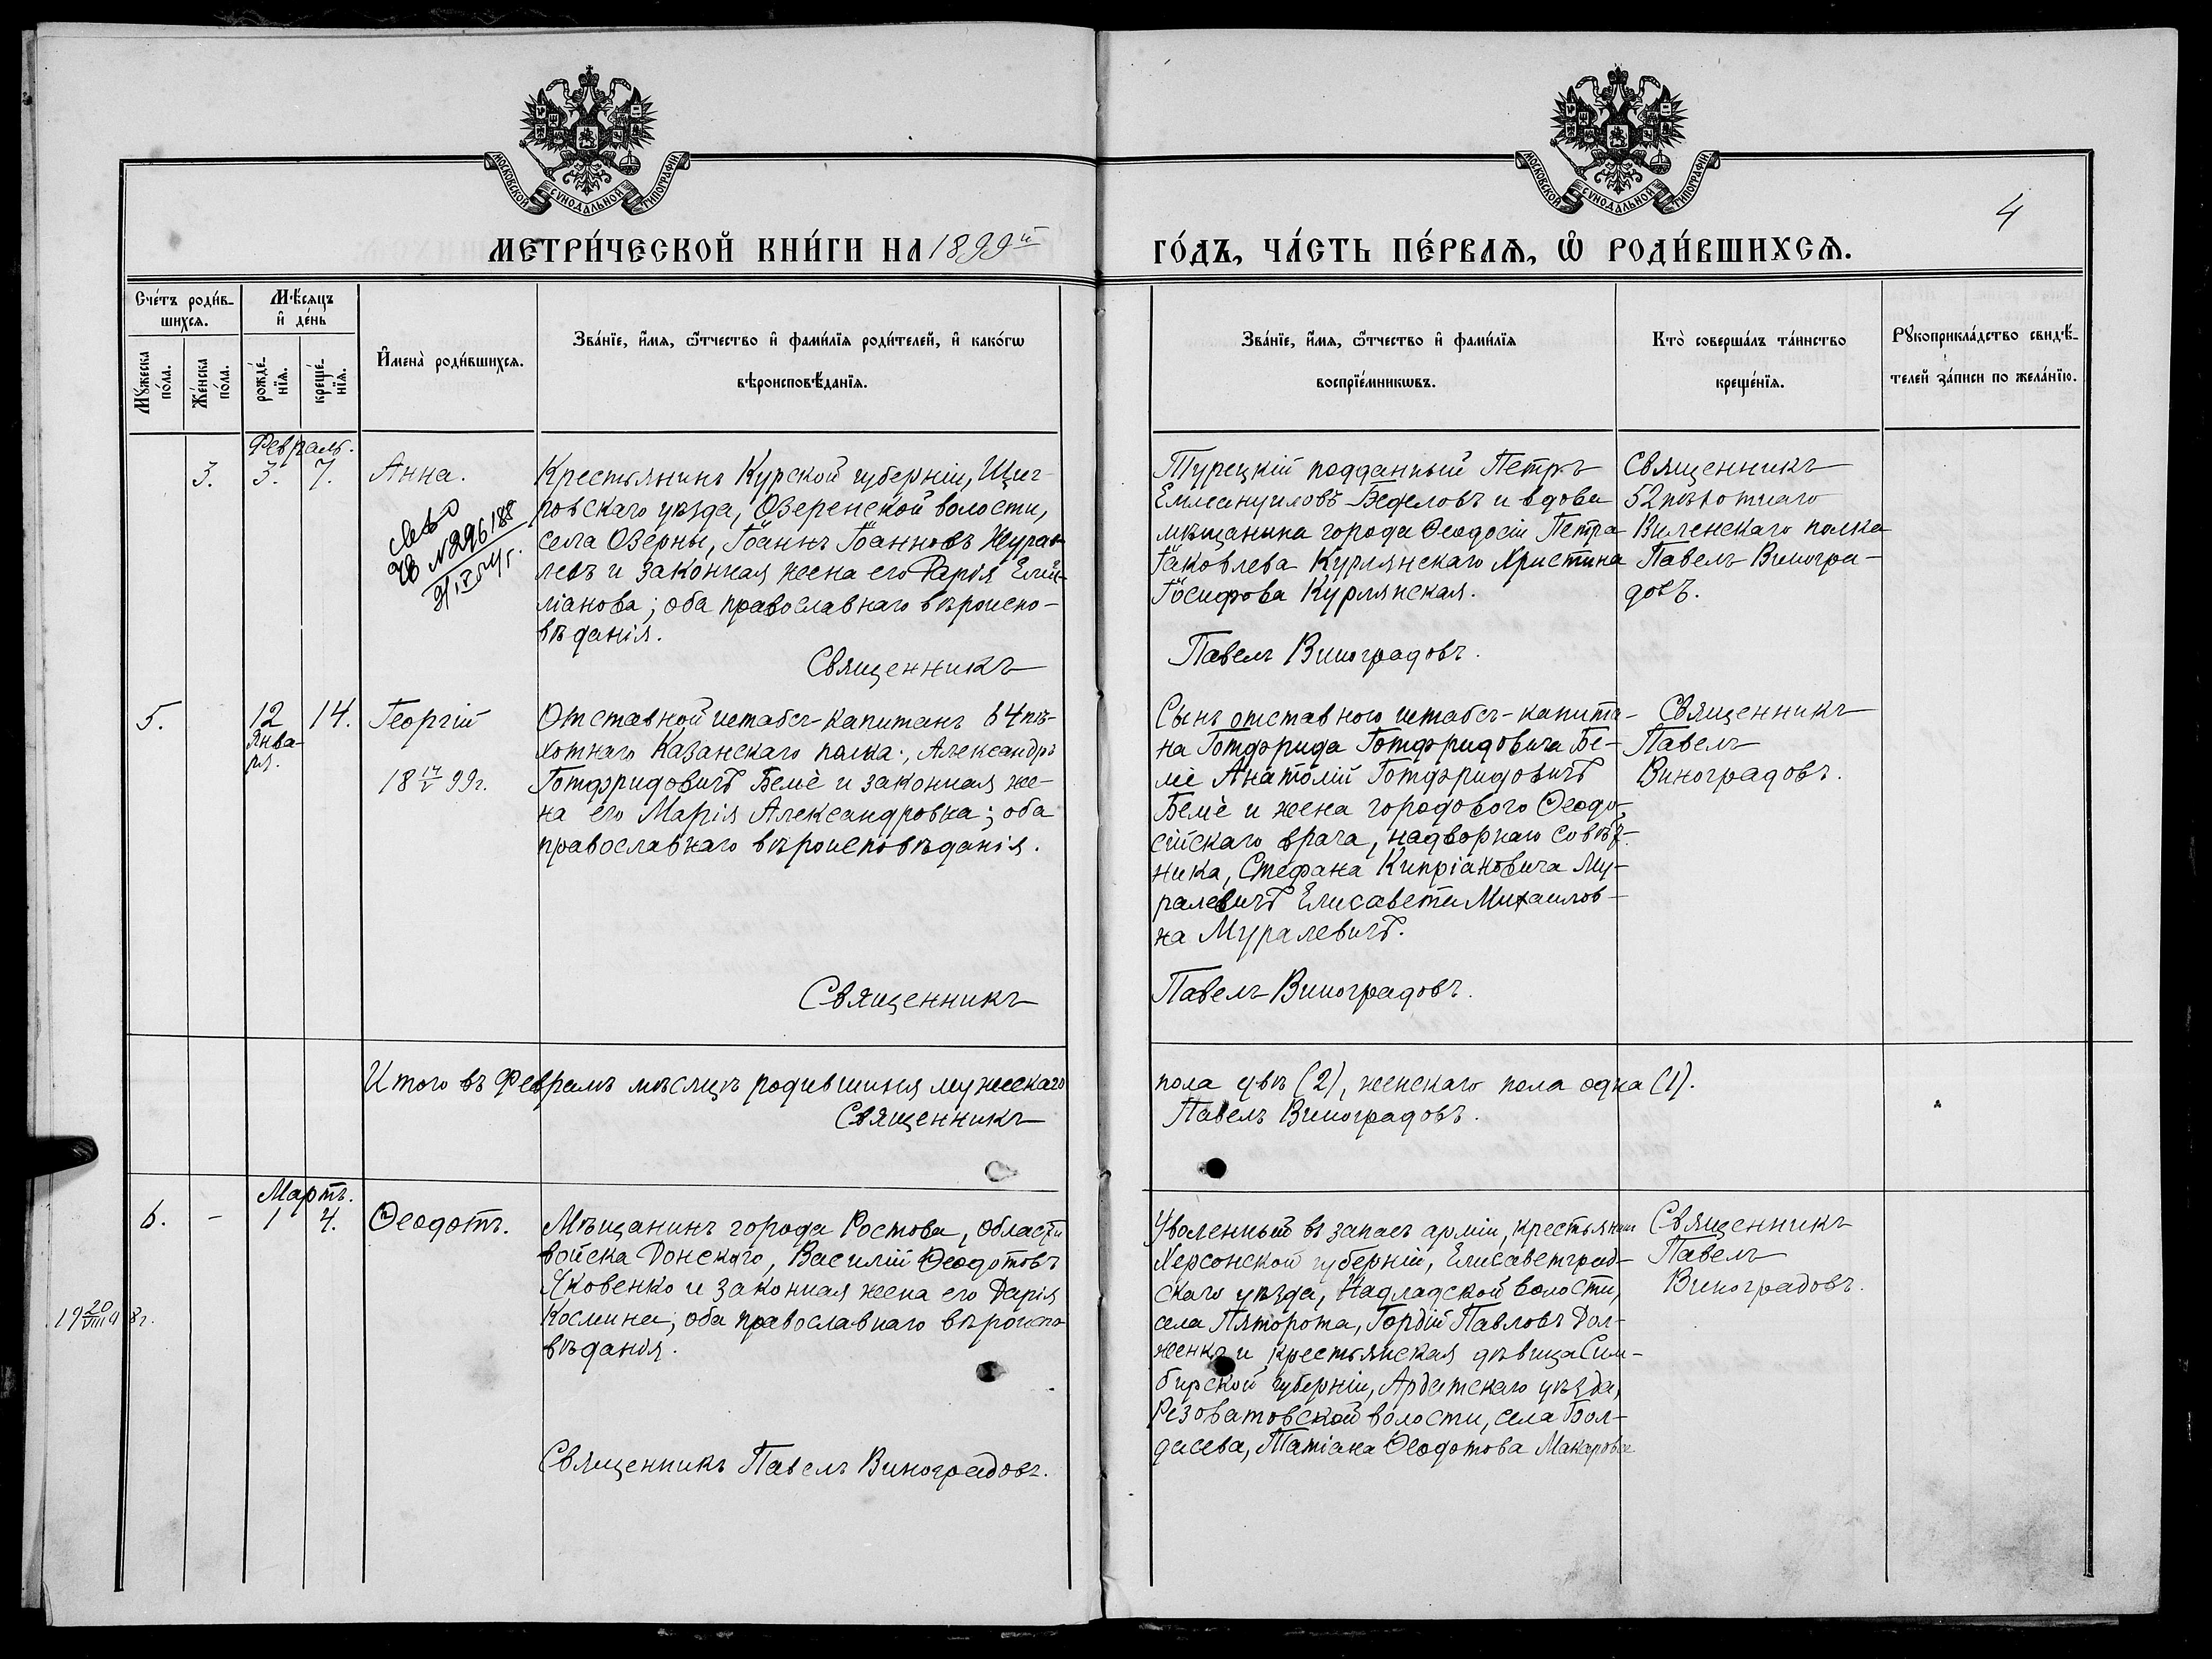 МОСКОВСКОЙ СѴНОДАЛЬНОЙ ТИПОГРАФІИ
МОСКОВСКОЙ СѴНОДАЛЬНОЙ ТИПОГРАФІИ
4
МЕТРИ́ЧЕСКОЙ КНИ́ГИ НА 1899й
ГО́ДЪ, ЧА́СТЬ ПЕ́РВАѦ, Ѿ РОДИ́ВШИХСѦ.
Сче́тъ роди́в-
шихсѧ.
Мѣ́сяцъ
и҆ де́нь
Мꙋ́жеска
по́ла.
Же́нска
по́ла.
рожде́-
нїѧ.
креще́-
нїѧ.
И҆мена̀ роди́вшихсѧ.
Зва́нїе, и҆́мѧ, ѻ҆́тчество и҆ фами́лїѧ роди́телей, и҆ како́гѡ
вѣроисповѣ́данїѧ.
Зва́нїе, и҆́мѧ, ѻ҆́тчество и҆ фами́лїѧ
воспрїе́мникѡвъ.
Кто̀ соверша́лъ та́инство
креще́нїѧ.
Рꙋкоприкла́дство свидѣ́-
телей за́писи по жела́нїю.
Февраль.
3. 3. 7. Анна.
Крестьянинъ Курской губерніи, Щиг-
ровскаго уѣзда, Озеренской волости,
села Озерны, Іоаннъ Іоанновъ Журав-
левъ и законная жена его Дарія Еми-
ліанова; оба православнаго вѣроиспо-
вѣданія.
Священникъ
№ 296188
Турецкій подданный Петръ
Еммануиловъ Бефеловъ и вдова
мѣщанина города Ѳеодосіи Петра
Іаковлева Курлянскаго Христина
Іосифова Курлянская.
Павелъ Виноградовъ.
Священникъ
52 пѣхотнаго
Виленскаго полка
Павелъ Виногра-
довъ.
5. 12 14. Георгій
Янва-
ря.
18 14/V 99г.
Отставной штабсъ-капитанъ 64 пѣ-
хотнаго Казанскаго полка, Александръ
Готфридовичъ Бемѐ и законная же-
на его Марія Александровна; оба
православнаго вѣроисповѣданія.
Священникъ
Сынъ отставного штабсъ-капита-
на Готфрида Готфридовича Бе-
ме Анатолій Готфридовичъ
Бемѐ и жена городового Ѳеодо-
сійскаго врача, надворнаго совѣт-
ника, Стефана Кипріановича Му-
ралевичъ Елисавета Михаилов-
на Муралевичъ.
Павелъ Виноградовъ.
Священникъ
Павелъ
Виноградовъ.
Итого въ Февралѣ мѣсяцѣ родившихся мужескаго
пола двѣ (2), женскаго пола одна (1).
Священникъ
Павелъ Виноградовъ.
Мартъ.
6. - 1 4. Ѳеодотъ.
19 20/VIII 98г.
Мѣщанинъ города Ростова, области
войска Донского, Василій Ѳеодотовъ
Яковенко и законная жена его Дарія
Космина; оба православнаго вѣроиспо-
вѣданія.
Священникъ Павелъ Виноградовъ.
Уволенный въ запасъ арміи, крестьянин
Херсонской губерніи, Елисаветград-
скаго уѣзда, Надладской волости,
села Пяторота, Гордій Павловъ Дол-
женко и крестьянская дѣвица Сим-
бирской губерніи, Ардатскаго уѣзда,
Резоватовской волости, села Бол-
дасева, Татіана Ѳеодотова Макарова
Священникъ
Павелъ
Виноградовъ.